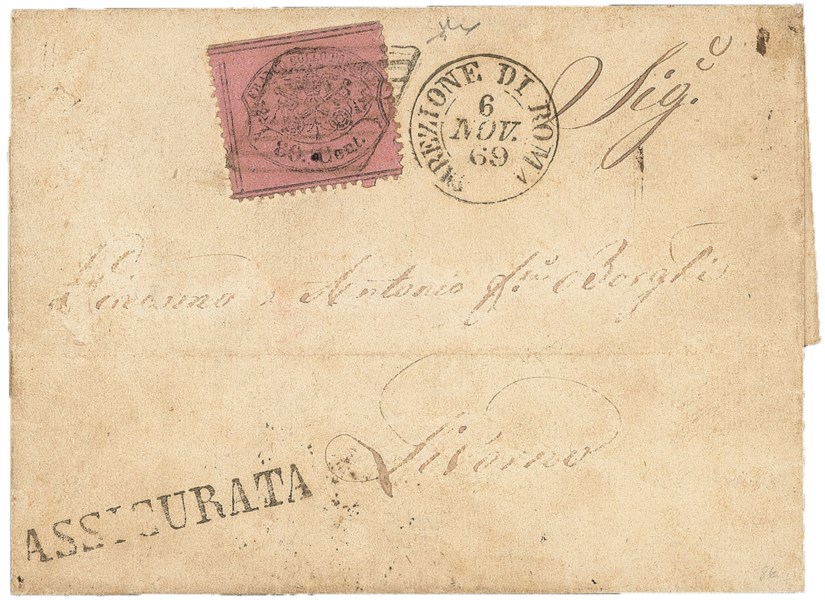 80. Cent.
DIREZIONE DI ROMA
6
NOV.
69
Sig.r
Vincenzo e Antonio f.lli Borghi
Livorno
ASSICURATA
86